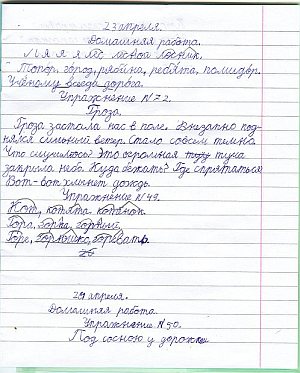 23 апреля.
Домашняя работа.
Л я я я лес лесной лесник.
Топор, город, рябина, ребята, помидор.
Учёному везде дорога.
Упражнение N 72.
Гроза.
Гроза застала нас в поле. Внезапно под-
нялся сильный ветер. Стало совсем темно.
Что случилось? Это огромная туча
закрыла небо. Куда бежать? Где спрятаться
Вот-вот хлынет дождь.
Упражнение N 49.
Кот, котята, котёнок.
Гора, горка, горный.
Горе, горюшко, горевать.
29 апреля.
Домашняя работа.
Упражнение N 50.
Под сосною у дорожки